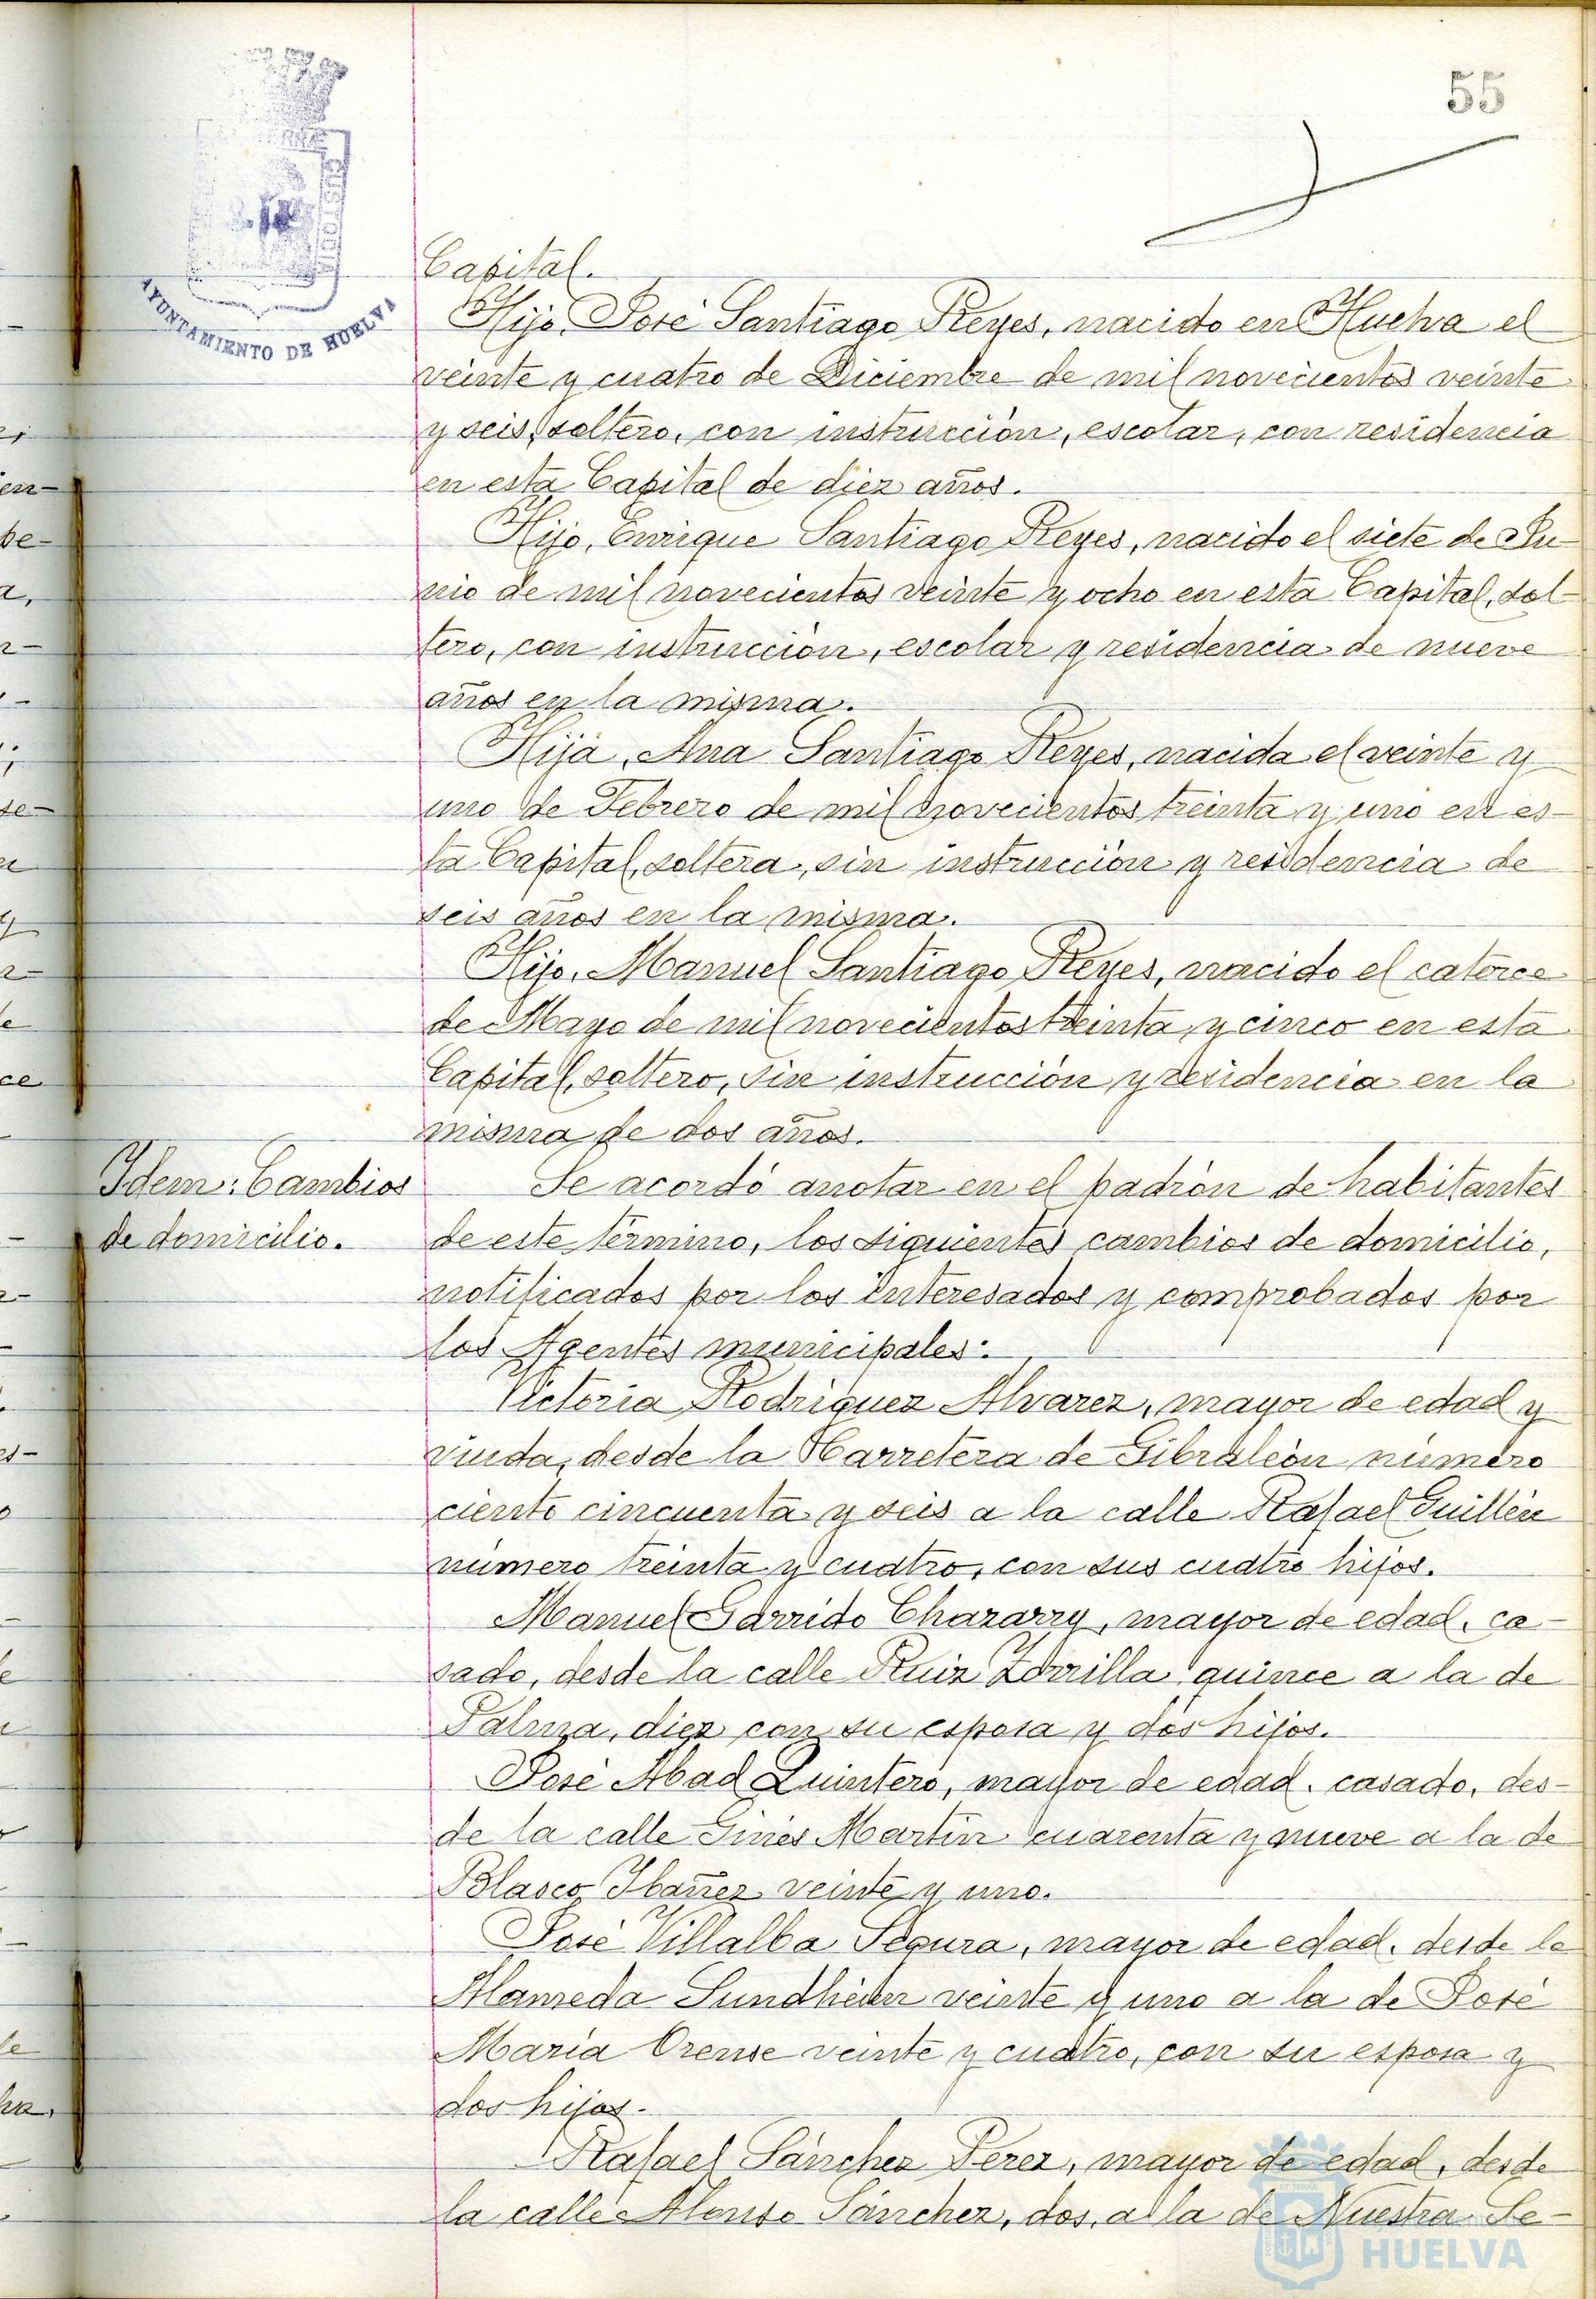 55
CUSTODIA
AYUNTAMIENTO DE HUELVA
Capital.
Hijo, José Santiago Reyes, nacido en Huelva el
veinte y cuatro de Diciembre de mil novecientos veinte
y seis, soltero, con instrucción, escolar, con residencia
en esta Capital de diez años.
Hijo, Enrique Santiago Reyes, nacido el siete de Ju-
nio de mil novecientos veinte y ocho en esta Capital, sol-
tero, con instrucción, escolar y residencia de nueve
años en la misma.
Hija, Ana Santiago Reyes, nacida el veinte y
uno de Febrero de mil novecientos treinta y uno en es-
ta Capital, soltera, sin instrucción y residencia de
seis años en la misma.
Hijo, Manuel Santiago Reyes, nacido el catorce
de Mayo de mil novecientos treinta y cinco en esta
Capital, soltero, sin instrucción y residencia en la
misma de dos años.
Idem: Cambios
de domicilio.
Se acordó anotar en el padrón de habitantes
de este término, los siguientes cambios de domicilio,
notificados por los interesados y comprobados por
los Agentes municipales:
Victoria Rodriguez Alvarez, mayor de edad y
viuda, desde la Carretera de Gibraleón número
ciento cincuenta y seis a la calle Rafael Guillén
número treinta y cuatro, con sus cuatro hijos.
Manuel Garrido Chazarry, mayor de edad, ca-
sado, desde la calle Ruiz Zorrilla quince a la de
Palma, diez con su esposa y dos hijos.
José Abad Quintero, mayor de edad, casado, des-
de la calle Ginés Martín cuarenta y nueve a la de
Blasco Ibañez veinte y uno.
José Villalba Segura, mayor de edad, desde la
Alameda Sundheim veinte y uno a la de José
María Orense veinte y cuatro, con su esposa y
dos hijos.
Rafael Sánchez Perez, mayor de edad, desde
la calle Alonso Sánchez, dos, a la de Nuestra Se-
HUELVA